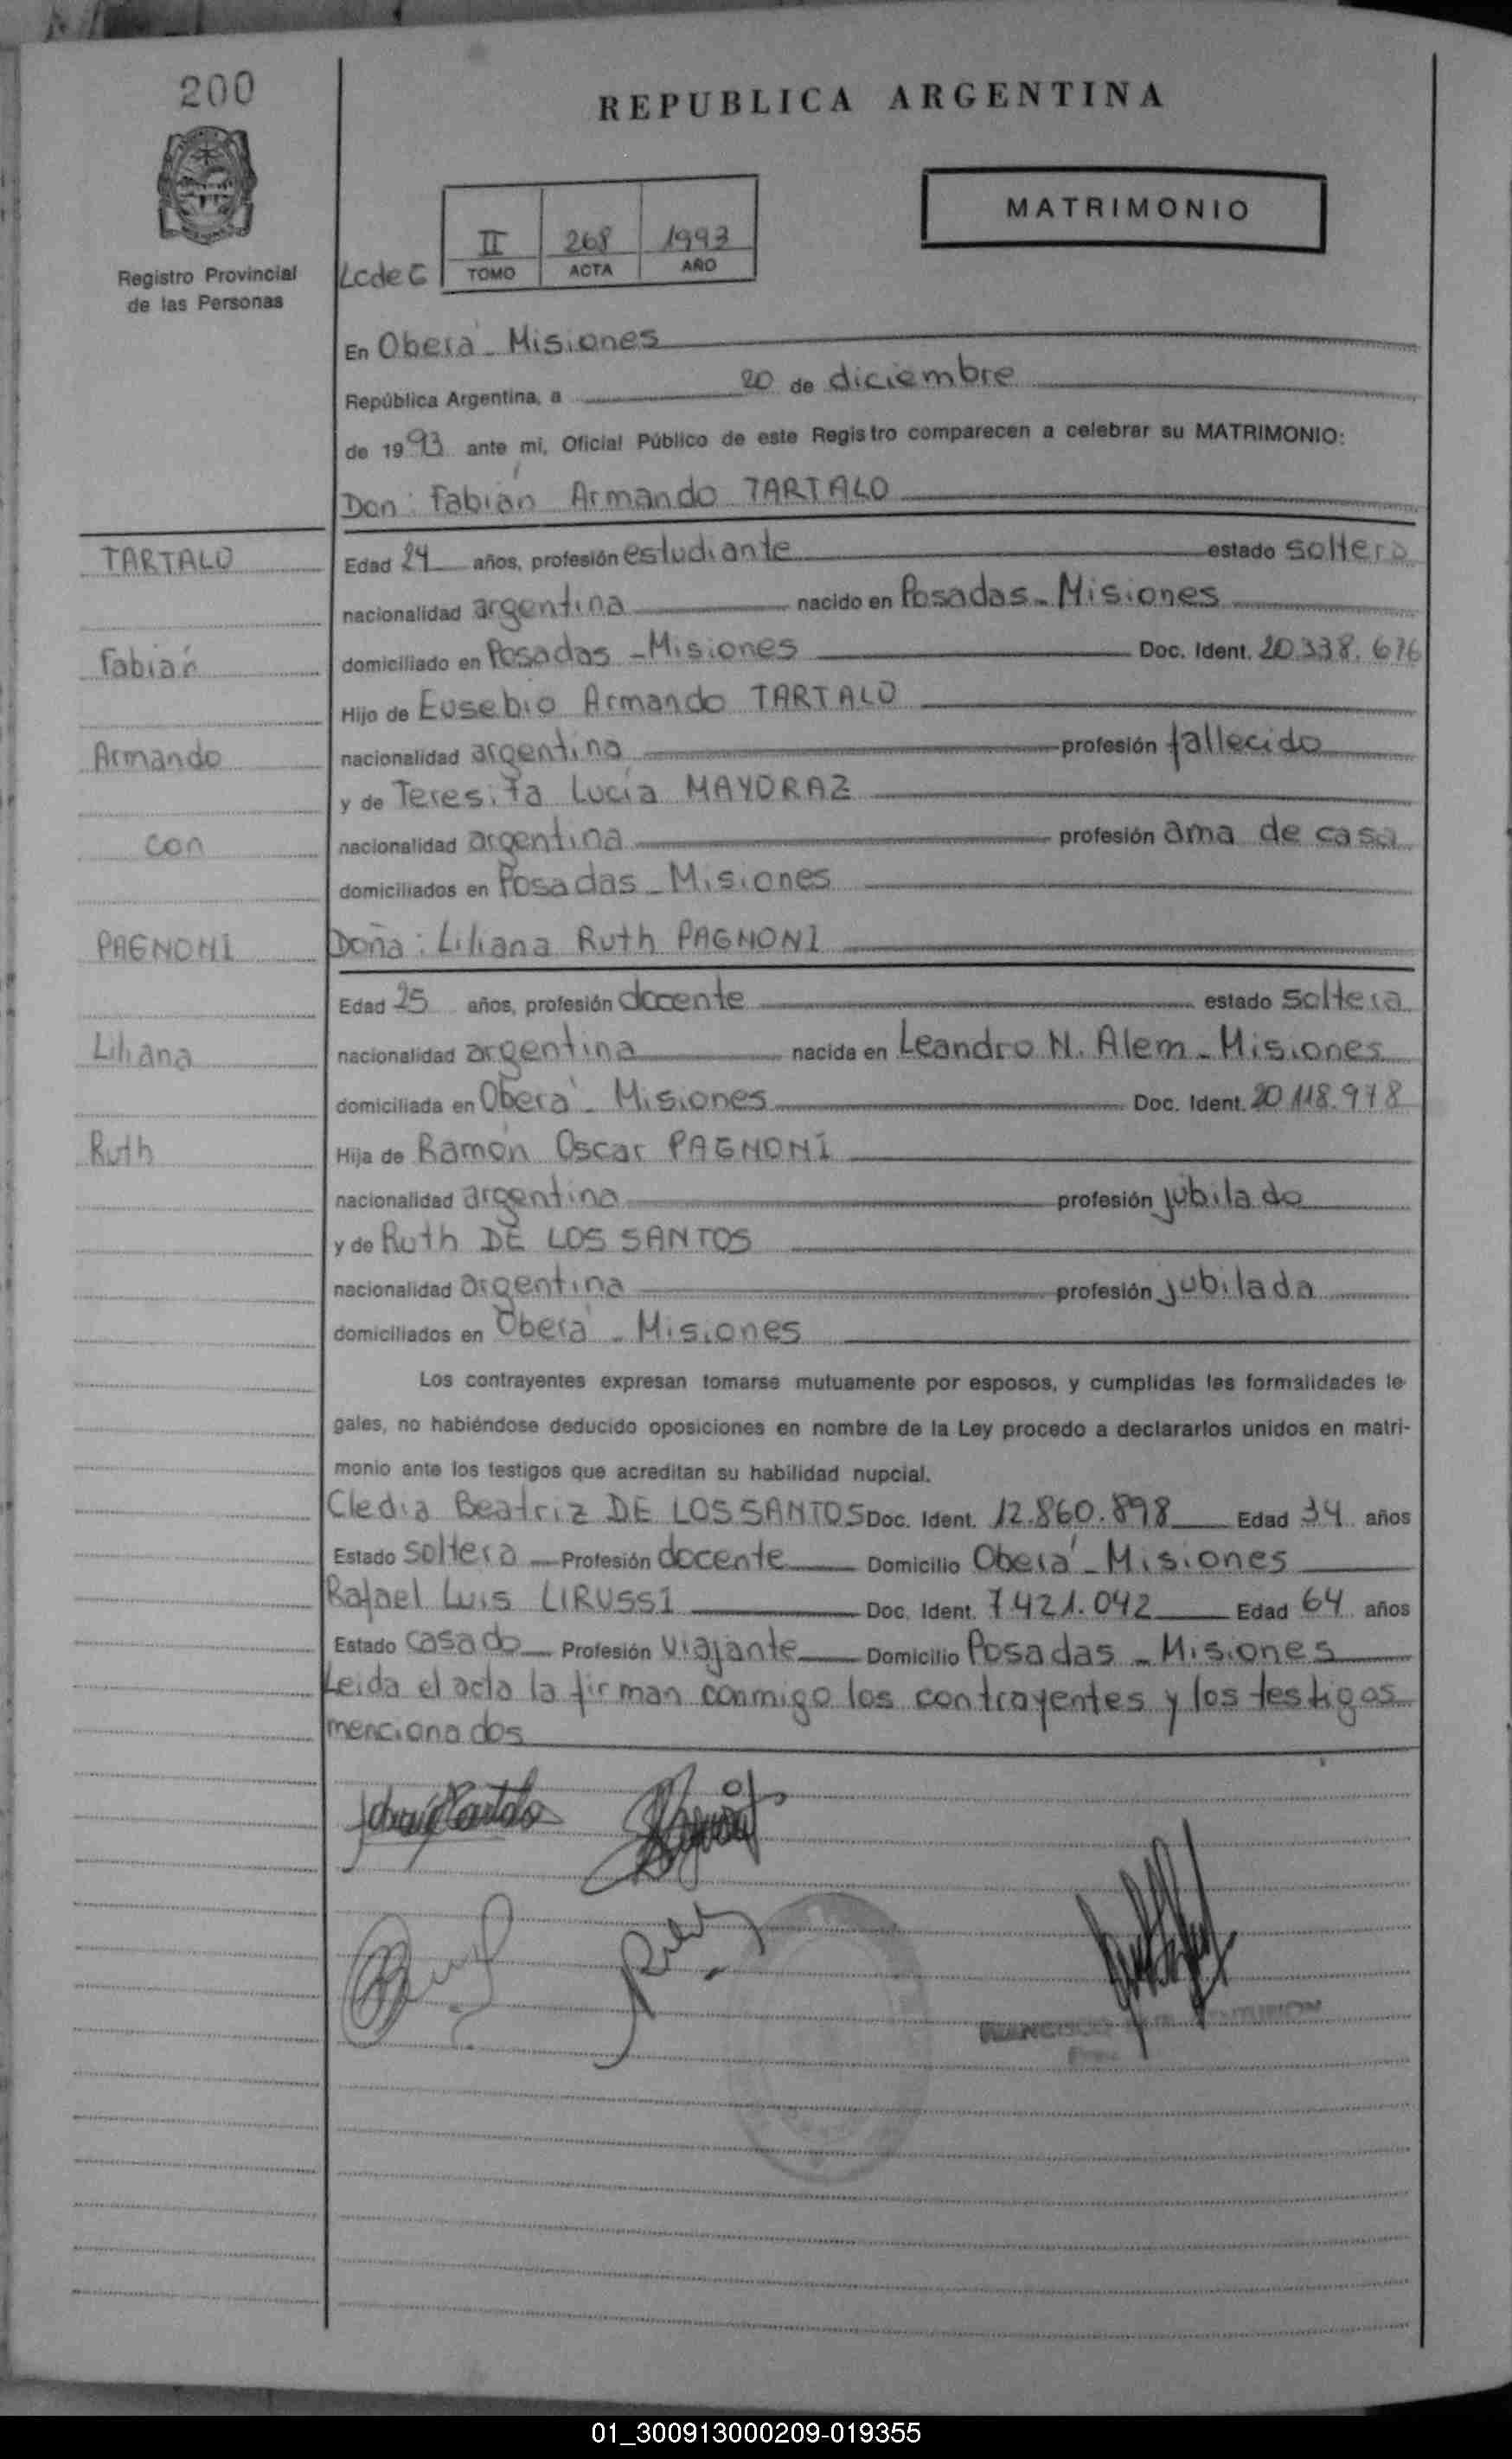 200
REPUBLICA ARGENTINA
MATRIMONIO
Registro Provincial
de las Personas
Lcde C
II 268 1993
TOMO ACTA AÑO
En Oberá - Misiones
República Argentina, a 20 de diciembre
de 1993 ante mi, Oficial Público de este Registro comparecen a celebrar su MATRIMONIO:
Don: Fabián Armando TARTALO
TARTALO
Edad 24 años, profesión estudiante estado soltero
nacionalidad argentina nacido en Posadas - Misiones
Fabián
domiciliado en Posadas - Misiones Doc. Ident. 20.338.676
Hijo de Eusebio Armando TARTALO
Armando
nacionalidad argentina profesión fallecido
y de Teresita Lucía MAYORAZ
con
nacionalidad argentina profesión ama de casa
domiciliados en Posadas - Misiones
PAGNONI
Doña: Liliana Ruth PAGNONI
Edad 25 años, profesión docente estado soltera
Liliana
nacionalidad argentina nacida en Leandro N. Alem - Misiones
domiciliada en Oberá - Misiones Doc. Ident. 20.118.978
Ruth
Hija de Ramón Oscar PAGNONI
nacionalidad argentina profesión jubilado
y de Ruth DE LOS SANTOS
nacionalidad argentina profesión jubilada
domiciliados en Oberá - Misiones
Los contrayentes expresan tomarse mutuamente por esposos, y cumplidas las formalidades le
gales, no habiéndose deducido oposiciones en nombre de la Ley procedo a declararlos unidos en matri-
monio ante los testigos que acreditan su habilidad nupcial.
Cledia Beatriz DE LOS SANTOS Doc. Ident. 12.860.898 Edad 34 años
Estado soltera Profesión docente Domicilio Oberá - Misiones
Rafael Luis LIRUSSI Doc. Ident. 7.421.042 Edad 64 años
Estado casado Profesión viajante Domicilio Posadas - Misiones
Leida el acta la firman conmigo los contrayentes y los testigos
mencionados
01_300913000209-019355